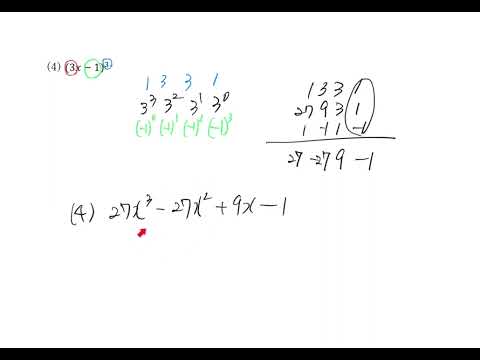 (4) (3x − 1)³
1 3 3 1
3³ 3² 3¹ 3⁰
(-1)⁰ (-1)¹ (-1)² (-1)³
1 3 3 1
27 9 3 1
1 -1 1 -1
27 -27 9 -1
(4) 27x³ − 27x² + 9x − 1